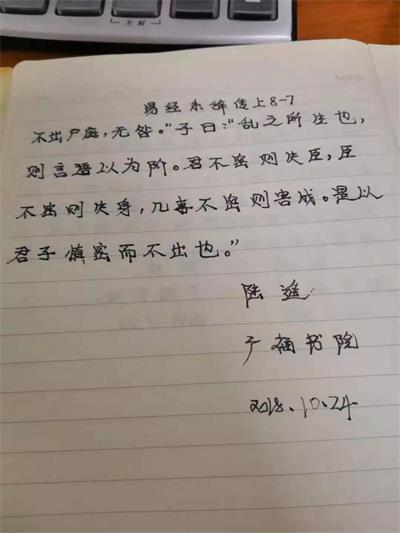 易经系辞传上8-7
不出户庭,无咎。"子曰:"乱之所生也,
则言语以为阶。君不密则失臣,臣
不密则失身,几事不密则害成。是以
君子慎密而不出也。"
陆遥
广福书院
2018.10.24